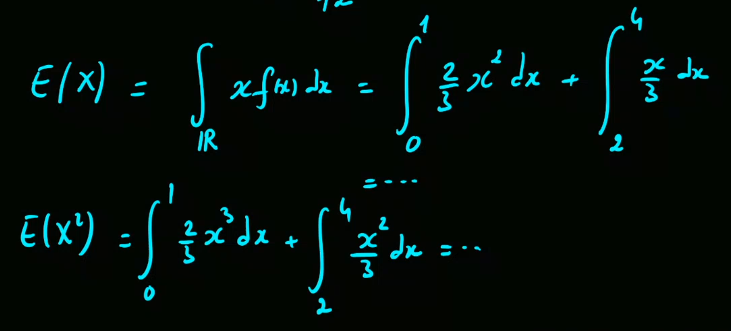 E(X) = ∫_{IR} x f(x) dx = ∫_0^1 2/3 x² dx + ∫_2^4 x/3 dx
= ....
E(X²) = ∫_0^1 2/3 x³ dx + ∫_2^4 x²/3 dx = ..